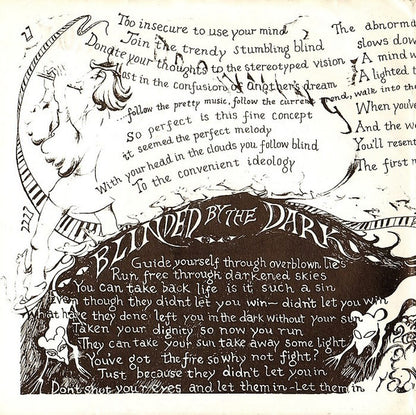 Too insecure to use your mind
Join the trendy stumbling blind
Donate your thoughts to the stereotyped vision
Lost in the confusion of another's dream
...follow the pretty music, follow the current trend, walk into the
So perfect is this fine concept
it seemed the perfect melody
With your head in the clouds you follow blind
To the convenient ideology
The abnorma
slows down
A mind w
A lighted
When you'
And the w
You'll resent
The first n
BLINDED BY THE DARK
Guide yourself through overblown lies
Run free through darkened skies
You can take back life is it such a sin
Even though they didnt let you win — didn't let you win
What have they done left you in the dark without your sun
Taken your dignity so now you run
They can take your sun take away some light
You've got the fire so why not fight?
Just because they didn't let you in
Dont shut your eyes and let them in - Let them in